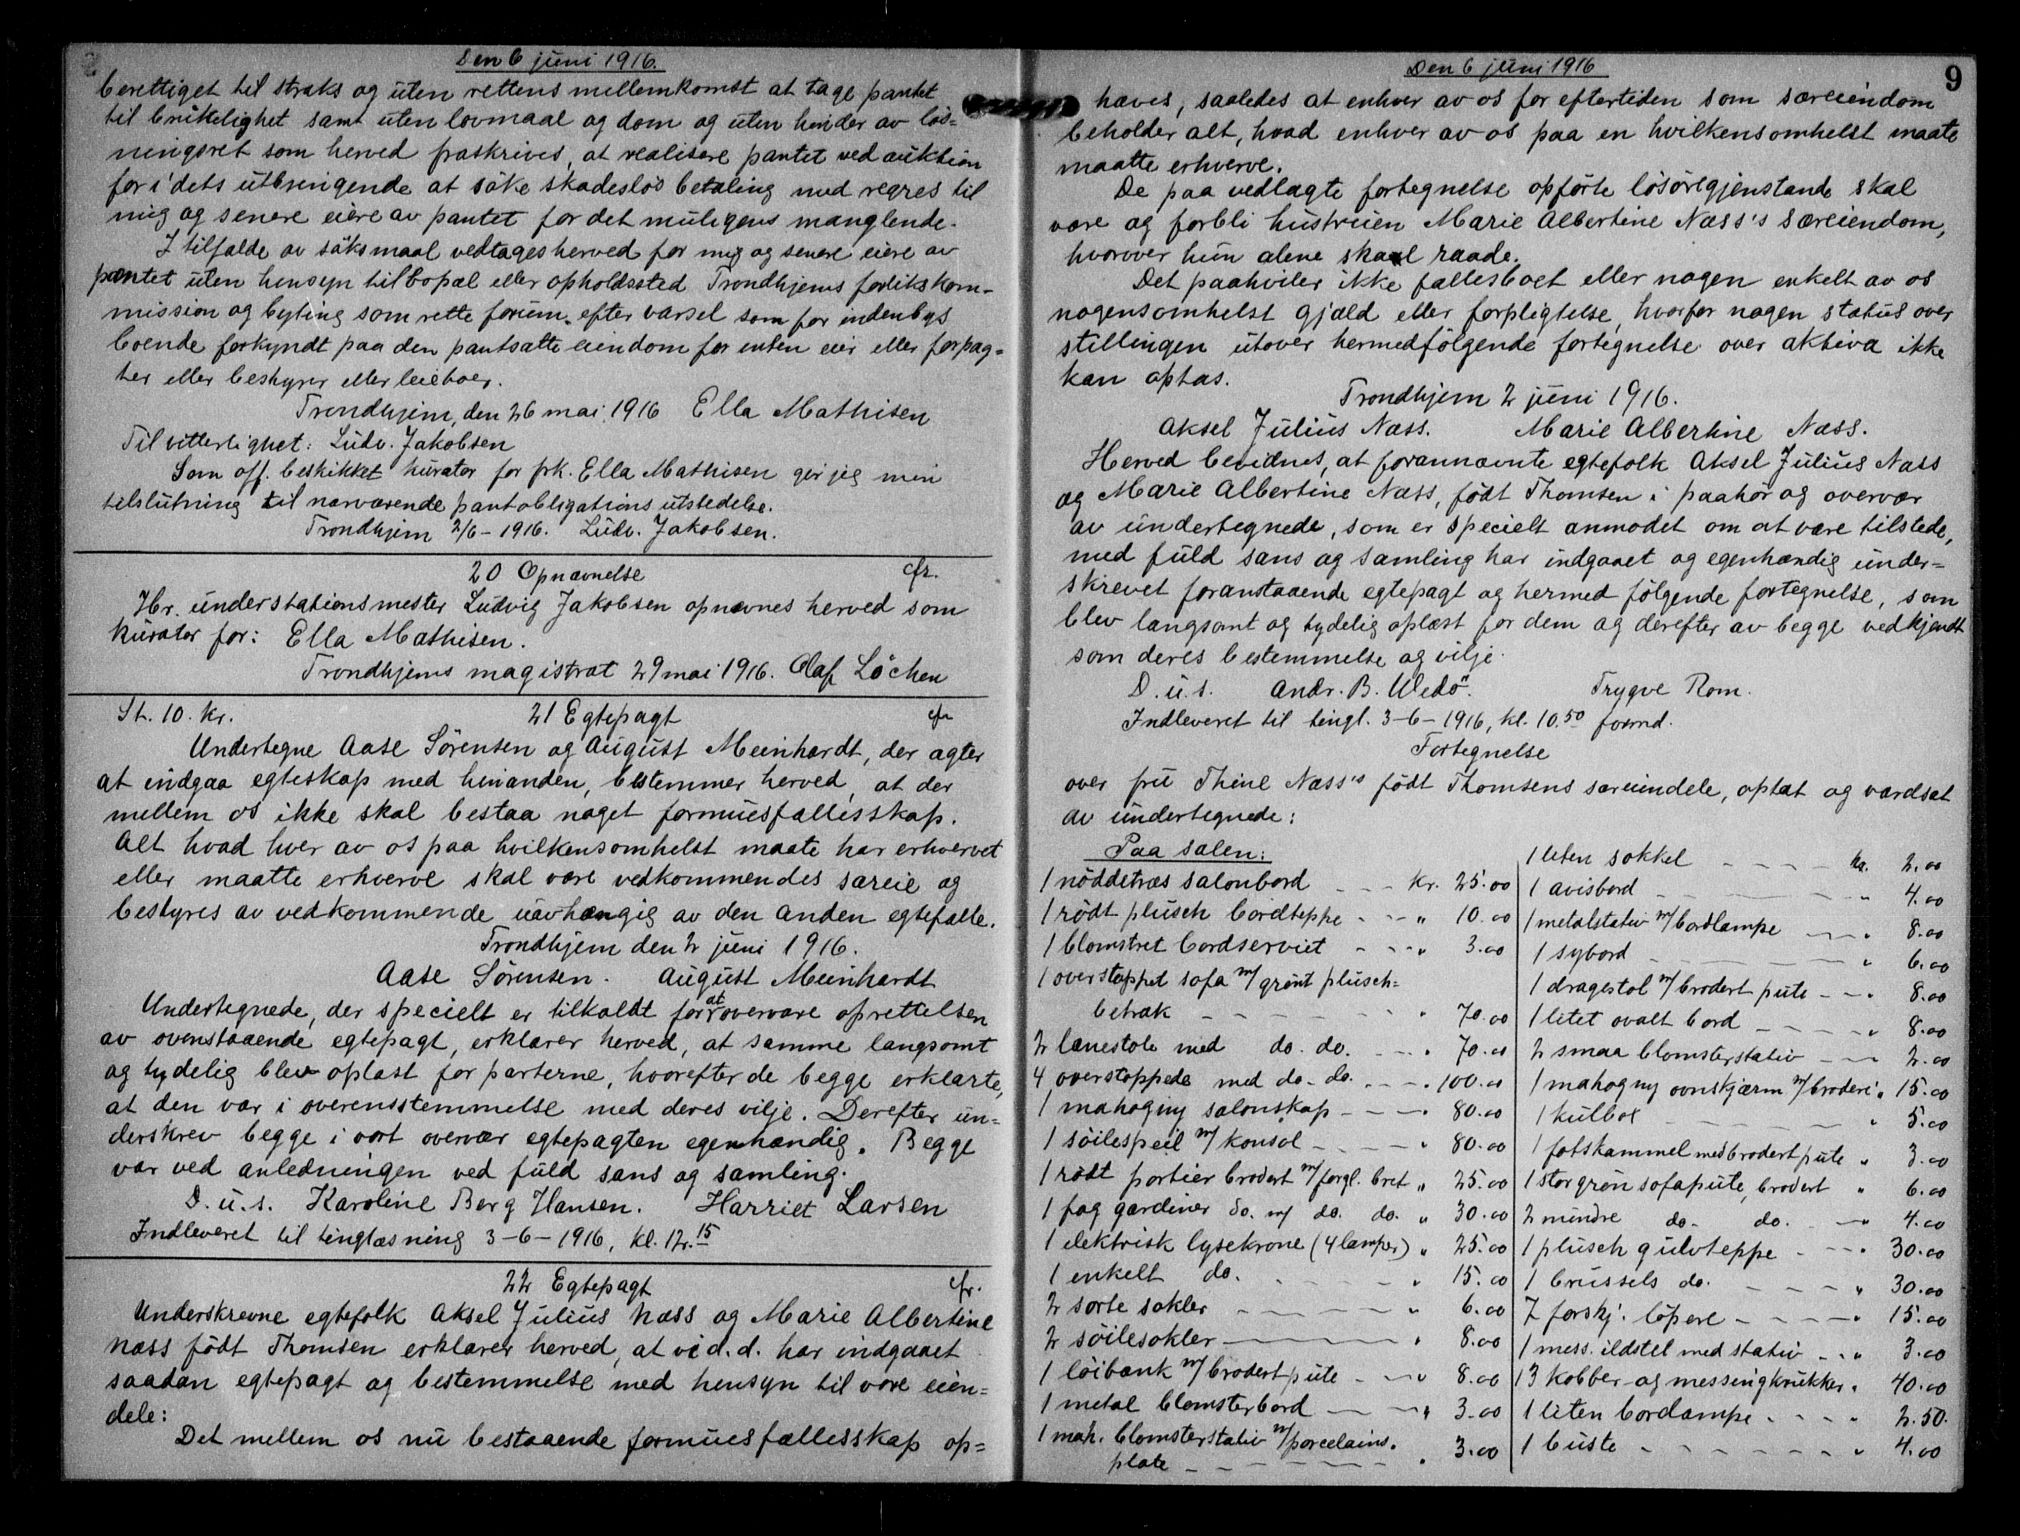 Den 6 juni 1916.
berettiget til straks og uten rettens mellemkomst at tage pantet
til brukelighet samt uten lovmaal og dom og uten hinder av løs=
ningsret som herved fraskrives, at realisere pantet ved auktion
for i dets utbringende at søke skadesløs betaling med regres til
mig og senere eiere av pantet for det muligens manglende.
I tilfælde av søksmaal vedtages herved for mig og senere eiere av
pantet uten hensyn til bopæl eller opholdssted Trondhjems forlikskom-
mission og byting som rette forum efter varsel som for indenbys
boende forkyndt paa den pantsatte eiendom for enten eier eller forpag=
ter eller bestyrer eller leieboer.
Trondhjem, den 26 mai 1916 Ella Mathisen
Til vitterlighet: Ludv. Jakobsen
Som off. beskikket kurator for frk. Ella Mathisen gir jeg min
tilslutning til nærværende pantobligations utstedelse.
Trondhjem 2/6-1916. Ludv. Jakobsen.
20 Opnævnelse cfr.
Hr. understationsmester Ludvig Jakobsen opnævnes herved som
kurator for: Ella Mathisen.
Trondhjems magistrat 29 mai 1916. Olaf Löchen
St. 10. kr. 21 Egtepagt cfr
Undertegne Aase Sørensen og August Meinhardt, der agter
at indgaa egteskap med hinanden, bestemmer herved, at der
mellem os ikke skal bestaa noget formuesfællesskap.
Alt hvad hver av os paa hvilkensomhelst maate har erhvervet
eller maatte erhverve skal være vedkommendes særeie og
bestyres av vedkommende uavhængig av den anden egtefælle.
Trondhjem den 2 juni 1916.
Aase Sørensen. August Meinhardt
Undertegnede, der specielt er tilkaldt for at overvære oprettelsen
av ovenstaaende egtepagt, erklærer herved, at samme langsomt
og tydelig blev oplæst for parterne, hvorefter de begge erklærte,
at den var i overensstemmelse med deres vilje. Derefter un=
derskrev begge i vort overvær egtepagten egenhændig. Begge
var ved anledningen ved fuld sans og samling.
D.u.s. Karoline Berg Hansen. Harriet Larsen
Indleveret til tinglæsning 3-6-1916, kl. 12.15
22 Egtepagt cfr.
Underskrevne egtefolk Aksel Julius Næss og Marie Albertine
Næss født Thomsen erklærer herved, at vi d.d. har indgaaet
saadan egtepagt og bestemmelse med hensyn til vore eien=
dele:
Det mellem os nu bestaaende formuesfællesskap op=
Den 6 juni 1916
9
hæves, saaledes at enhver av os for eftertiden som særeiendom
beholder alt, hvad enhver av os paa en hvilkensomhelst maate
maatte erhverve.
De paa vedlagte fortegnelse opførte løsøregjenstande skal
være og forbli hustruen Marie Albertine Næss's særeiendom,
hvorover hun alene skal raade.
Det paahviler ikke fællesboet eller nogen enkelt av os
nogensomhelst gjæld eller forpligtelse, hvorfor nogen status over
stillingen utover hermedfølgende fortegnelse over aktiva ikke
kan optas.
Trondhjem 2 juni 1916.
Aksel Julius Næss. Marie Albertine Næss.
Herved bevidnes, at forannævnte egtefolk Aksel Julius Næss
og Marie Albertine Næss, født Thomsen i paahør og overvær
av undertegnede, som er specielt anmodet om at være tilstede,
med fuld sans og samling har indgaaet og egenhændig under=
skrevet foranstaaende egtepagt og hermed følgende fortegnelse, som
blev langsomt og tydelig oplæst for dem og derefter av begge vedkjendt
som deres bestemmelse og vilje.
D.u.s. Andr. B. Wedø. Trygve Rom.
Indleveret til tingl. 3-6-1916, kl. 10.50 formd.
Fortegnelse
over fru Thine Næss's født Thomsens særeiendele, optat og værdsat
av undertegnede:
Paa salen:
1 nøddetræs salonbord - - - kr. 25.00
1 rødt plusch bordteppe - - - " 10.00
1 blomstret bordserviet - - - " 3.00
1 overstoppet sofa m/ grønt plusch=
betræk - - - - - " 70.00
2 lænestole med do. do. - - - " 70.00
4 overstoppede med do. do. - - - 100.00
1 mahogny salonskap - - - " 80.00
1 søilespeil m/ konsol - - - " 80.00
1 rødt portier brodert m/ forgl. bret " 25.00
1 fag gardiner do. m/ do. do. " 30.00
1 elektrisk lysekrone (4 lamper) " 25.00
1 enkelt do. - - - " 15.00
2 sorte sokler - - - " 6.00
2 søilesokler - - - " 8.00
1 løibænk m/ brodert pute - - " 8.00
1 metal blomsterbord - - - " 3.00
1 mah. blomsterstativ m/ porcelains.
plate - - - - - " 3.00
1 liten sokkel - - - - kr. 2.00
1 avisbord - - - " 4.00
1 metalstativ m/ bordlampe - - - " 8.00
1 sybord - - - " 6.00
1 dragestol m/ brodert pute - - " 8.00
1 litet ovalt bord - - - " 8.00
2 smaa blomsterstativ - - - 2.00
1 mahogny ovnskjærm m/ broderi " 15.00
1 kulbox - - - " 5.00
1 fotskammel med brodert pute " 3.00
1 stor grøn sofapute, brodert " 6.00
2 mindre do. do. - " 4.00
1 plusch gulvteppe - - - " 30.00
1 brussels do. - - - " 30.00
7 forskj. løpere - - - " 15.00
1 mess. ildstel med stativ - - " 3.00
13 kobber- og messingkrukker " 40.00
1 liten bordlampe - - - " 2.50
1 buste - - - " 4.00